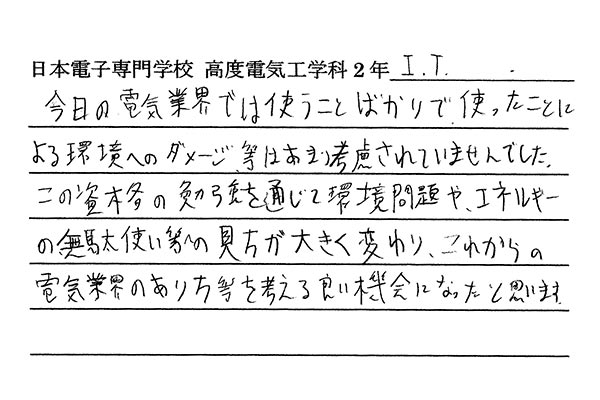 日本電子専門学校 高度電気工学科2年 I.T.
今日の電気業界では使うことばかりで、使ったことに
よる環境へのダメージ等はあまり考慮されていませんでした。
この資本格の勉強を通じて環境問題や、エネルギー
の無駄使い等への見方が大きく変わり、これからの
電気業界のあり方等を考える良い機会になったと思います